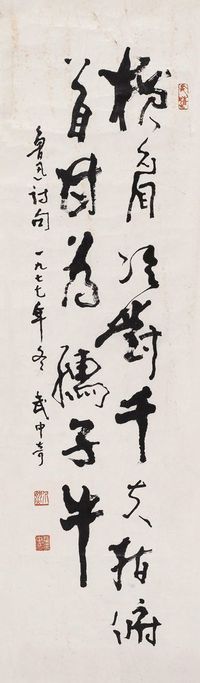 横眉冷对千夫指俯
首甘为孺子牛
鲁迅诗句 一九七七年冬 武中奇